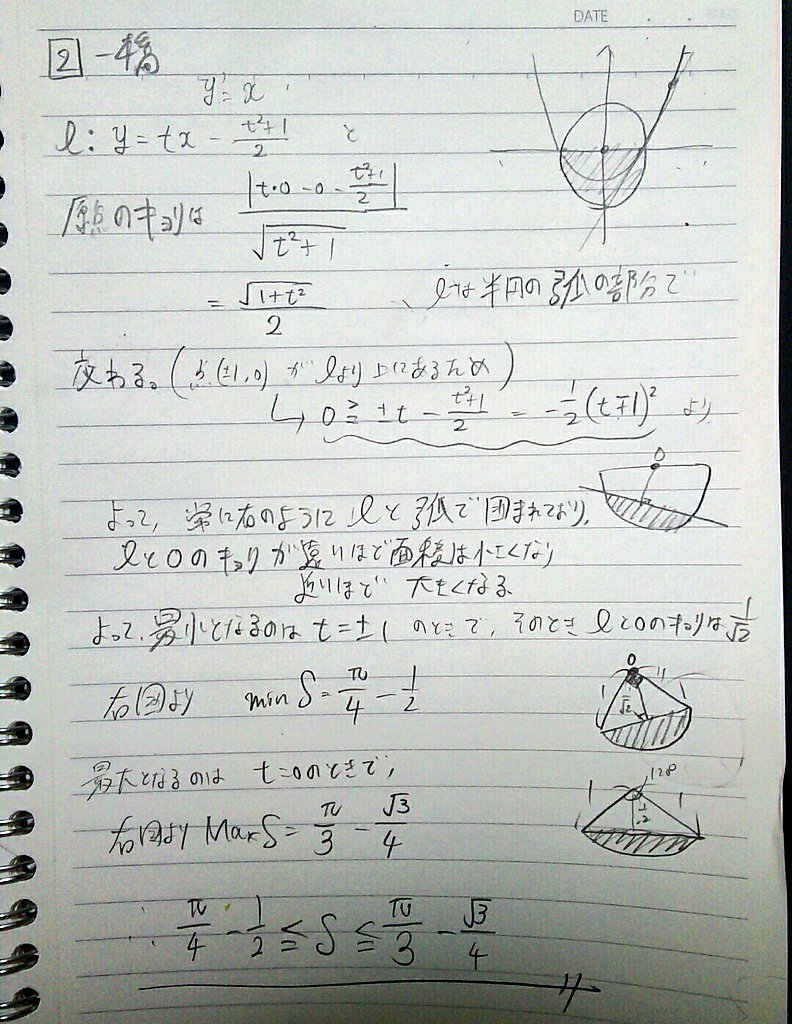 DATE
2 一橋
y' = x
l: y = tx - \frac{t²+1}{2} と
原点のキョリは \frac{|t・0 - 0 - \frac{t²+1}{2}|}{\sqrt{t²+1}}
= \frac{\sqrt{1+t²}}{2} lは半円の弧の部分で
交わる。(点(±1,0)がlより上にあるため)
↳ 0 ≧ ±t - \frac{t²+1}{2} = -\frac{1}{2}(t∓1)² より
O
よって、常に右のようにlと弧で囲まれており、
lとOのキョリが遠いほど面積は小さくなり
近いほど 大きくなる
よって、最小となるのは t = ±1 のときで、そのとき lとOのキョリは \frac{1}{\sqrt{2}}
右図より min S = \frac{π}{4} - \frac{1}{2}
O 1 1 \frac{1}{\sqrt{2}}
最大となるのは t=0のときで、
120° 1 1 \frac{1}{2}
右図より Max S = \frac{π}{3} - \frac{\sqrt{3}}{4}
∴ \frac{π}{4} - \frac{1}{2} ≦ S ≦ \frac{π}{3} - \frac{\sqrt{3}}{4}